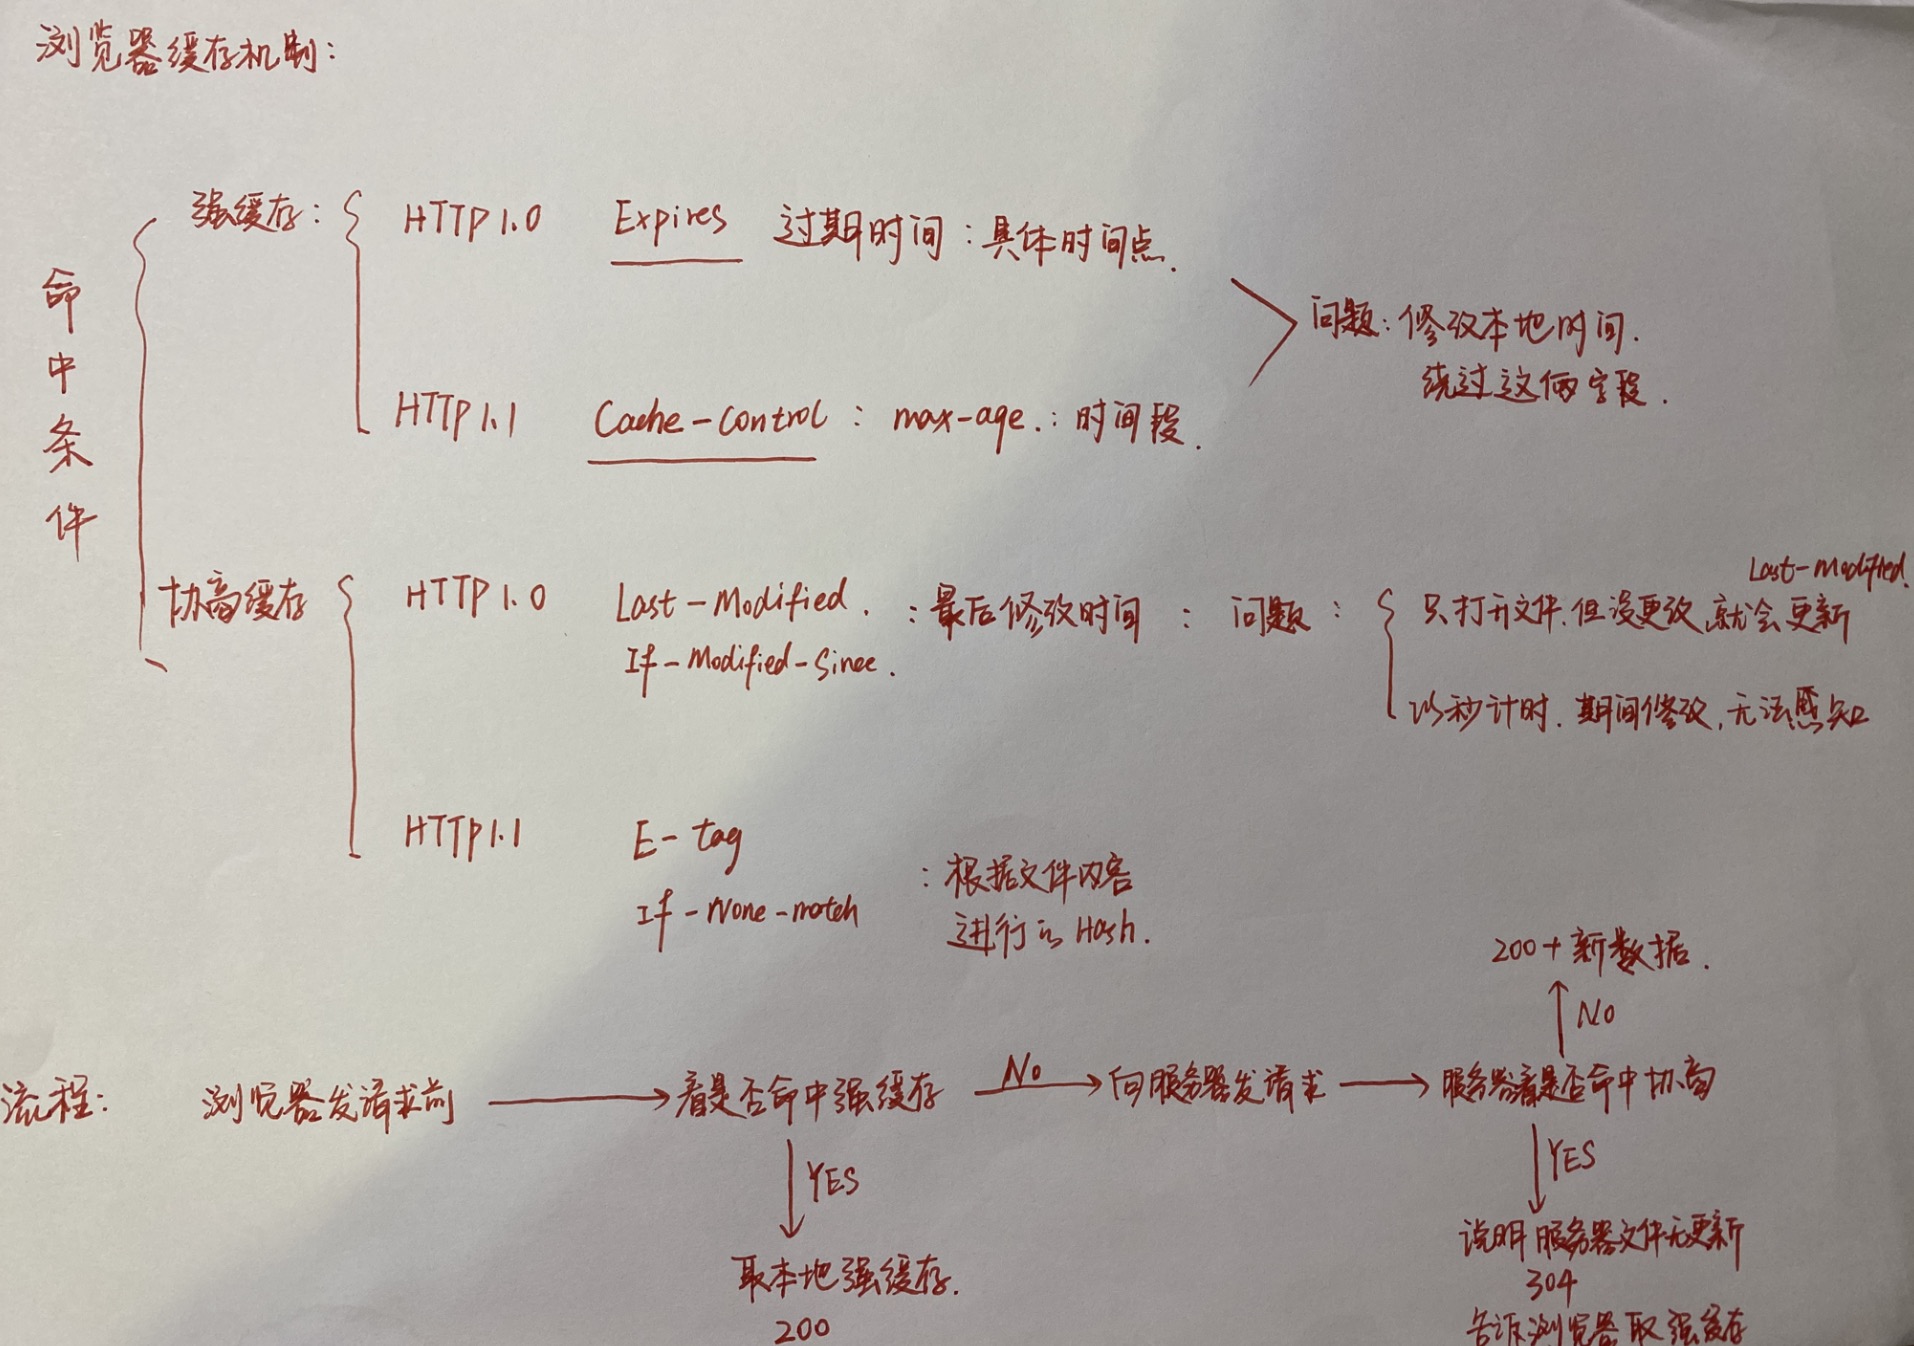 浏览器缓存机制：
命中条件
强缓存：
HTTP1.0 Expires 过期时间：具体时间点.
HTTP1.1 Cache-Control : max-age.：时间段.
问题：修改本地时间.
绕过这俩字段.
协商缓存
HTTP1.0 Last-Modified. ：最后修改时间 ： 问题：
If-Modified-Since.
Last-Modified.
只打开文件.但没更改,就会更新
以秒计时.期间修改,无法感知
HTTP1.1 E-tag
If-None-match
：根据文件内容
进行 Hash.
流程： 浏览器发请求前
看是否命中强缓存
No
向服务器发请求
服务器看是否命中协商
NO
200+新数据.
YES
取本地强缓存.
200
YES
说明服务器文件无更新
304
告诉浏览器取强缓存